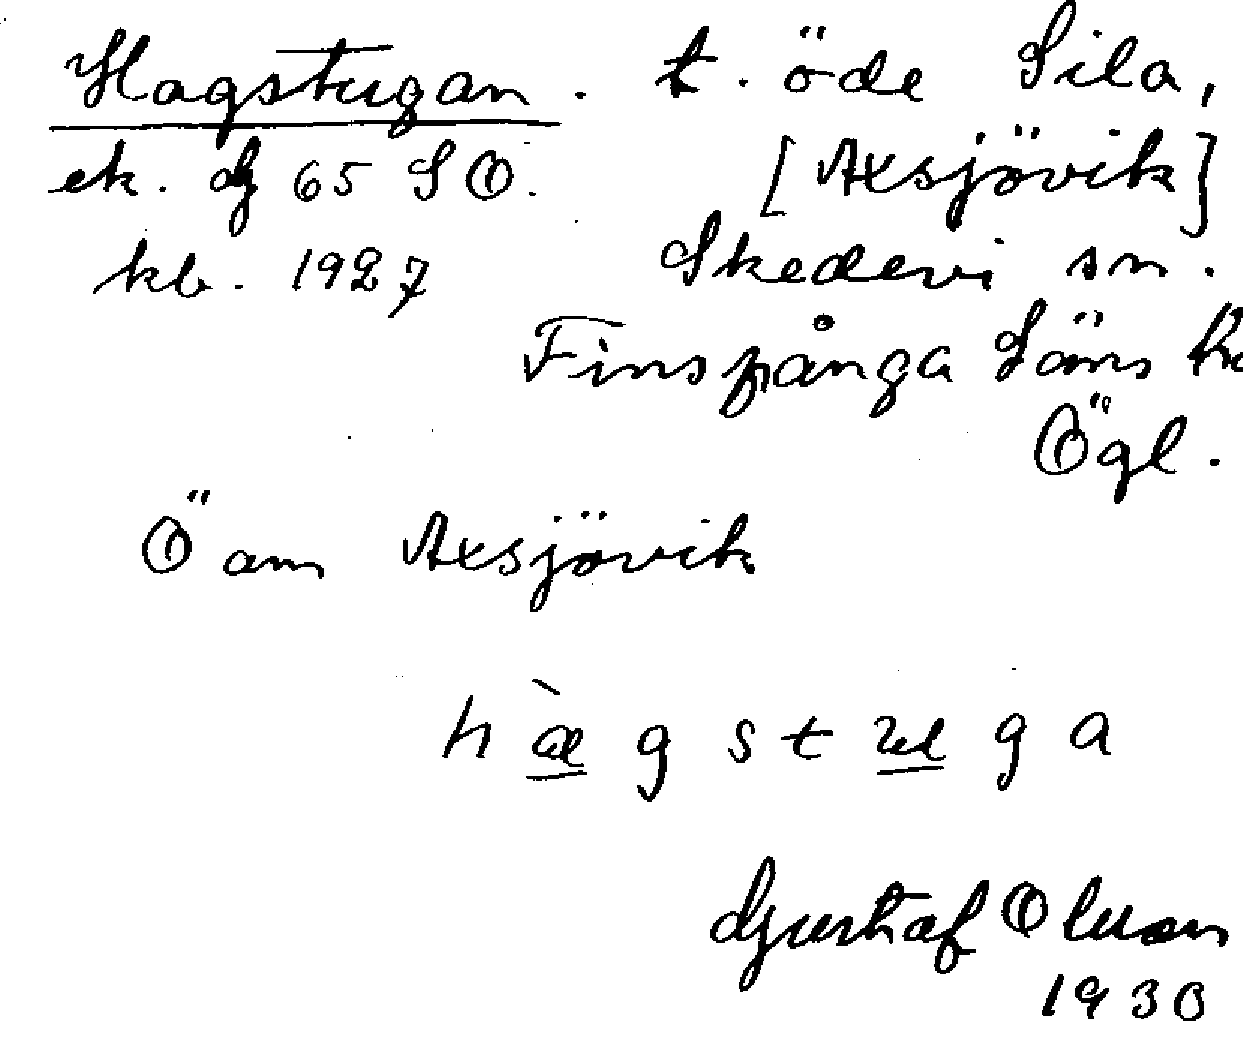 Hagstugan. t. öde Sila,
ek. df 65 SO. [Axsjövik]
kb. 1927 Skedevi sn.
Finspånga Läns
Ögl.
Ö om Axsjövik
h æ̀ g s t u g a
Gustaf Olsson
1930